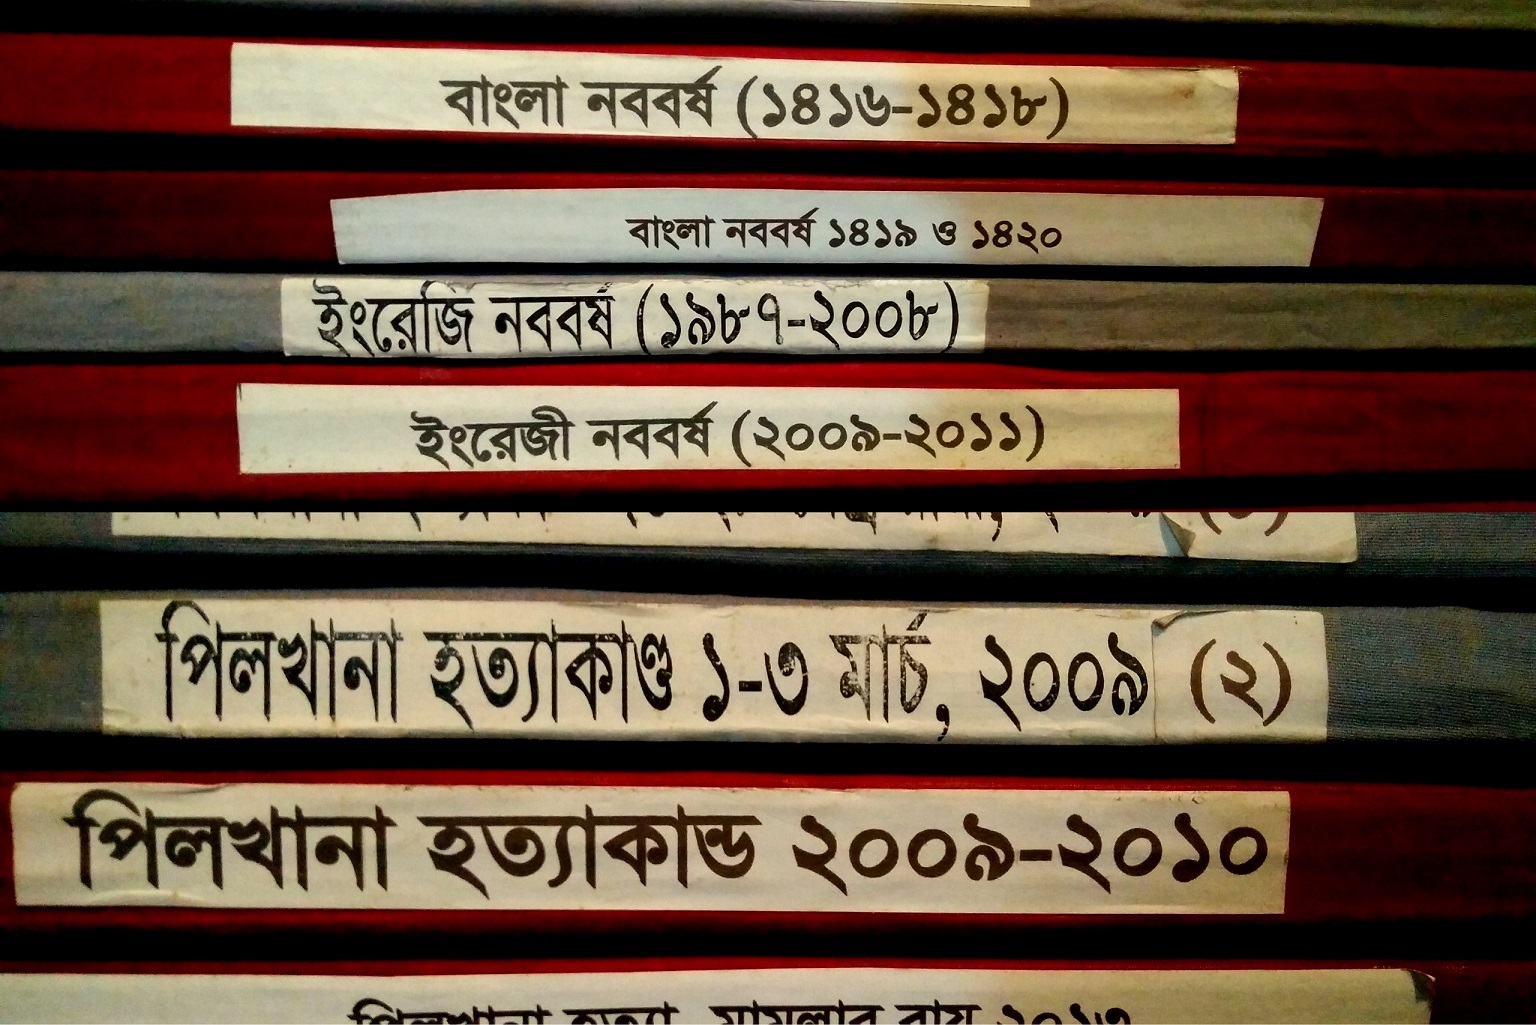 বাংলা নববর্ষ (১৪১৬-১৪১৮)
বাংলা নববর্ষ ১৪১৯ ও ১৪২০
ইংরেজি নববর্ষ (১৯৮৭-২০০৮)
ইংরেজী নববর্ষ (২০০৯-২০১১)
পিলখানা হত্যাকাণ্ড ১-৩ মার্চ, ২০০৯ (২)
পিলখানা হত্যাকান্ড ২০০৯-২০১০
পিলখানা হত্যা মামলার রায় ২০১৩